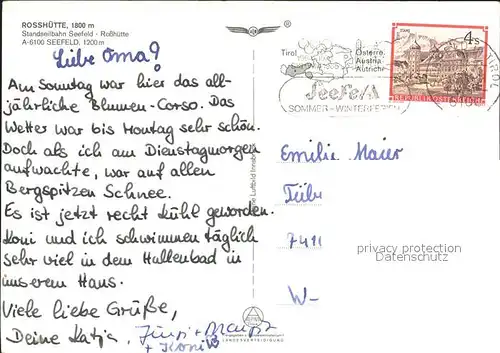 ROSSHÜTTE, 1800 m
Standseilbahn Seefeld - Roßhütte
A-6100 SEEFELD, 1200 m
Liebe Oma!
Am Sonntag war hier das all-
jährliche Blumen-Corso. Das
Wetter war bis Montag sehr schön.
Doch als ich am Dienstagmorgen
aufwachte, war auf allen
Bergspitzen Schnee.
Es ist jetzt recht kühl geworden.
Koni und ich schwimmen täglich
sehr viel in dem Hallenbad in
unserem Haus.
Viele liebe Grüße,
Deine Katja,
+ Koni
LANDESVERTEIDIGUNG
Tirol
Österr.
Austria
Autriche
Seefeld
SOMMER - WINTERFERIEN
4 S
STAMS
REPUBLIK ÖSTERREICH
Emilie Maier
7411
W-
privacy protection
Datenschutz